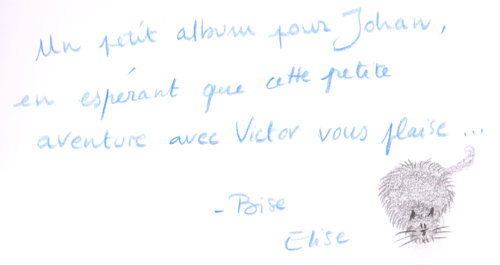 Un petit album pour Johan,
en espérant que cette petite
aventure avec Victor vous plaise ...
- Bise
Elise